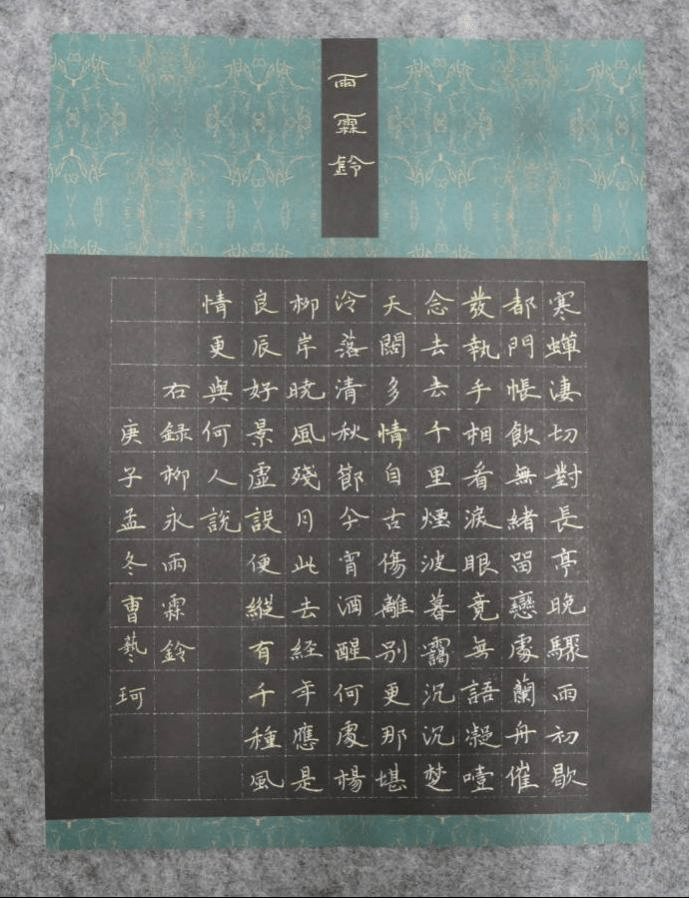 雨霖鈴
寒蟬淒切對長亭晚驟雨初歇
都門帳飲無緒留戀處蘭舟催
發執手相看淚眼竟無語凝噎
念去去千里煙波暮靄沉沉楚
天闊多情自古傷離別更那堪
冷落清秋節今宵酒醒何處楊
柳岸曉風殘月此去経年應是
良辰好景虛設便縱有千種風
情更與何人說
右録柳永雨霖鈴
庚子孟冬曹藝珂